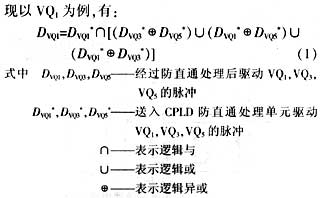 现以 VQ₁ 为例,有:
D_VQ1=D_VQ1*∩[(D_VQ3*⊕D_VQ5*)∪(D_VQ1*⊕D_VQ5*)∪
(D_VQ1*⊕D_VQ3*)] (1)
式中 D_VQ1,D_VQ3,D_VQ5——经过防直通处理后驱动 VQ₁,VQ₃,
VQ₅ 的脉冲
D_VQ1*,D_VQ3*,D_VQ5*——送入 CPLD 防直通处理单元驱动
VQ₁,VQ₃,VQ₅ 的脉冲
∩——表示逻辑与
∪——表示逻辑或
⊕——表示逻辑异或